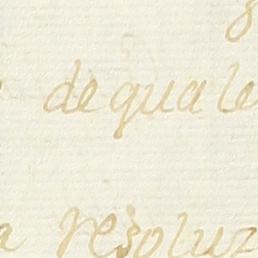 dequale
a resoluz